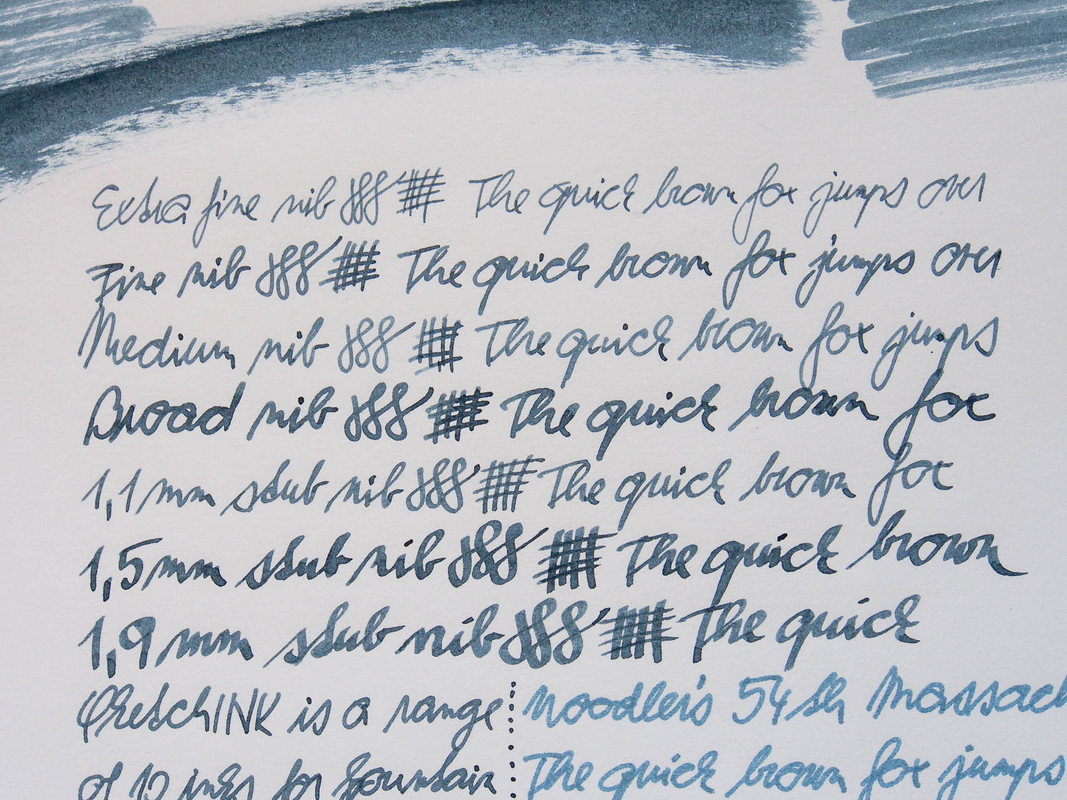 Extra fine nib The quick brown fox jumps over
Fine nib The quick brown fox jumps over
Medium nib The quick brown fox jumps
Broad nib The quick brown fox
1,1 mm stub nib The quick brown fox
1,5 mm stub nib The quick brown
1,9 mm stub nib The quick
SketchINK is a range
of 10 inks for fountain
Noodler's 54th Massach
The quick brown fox jumps